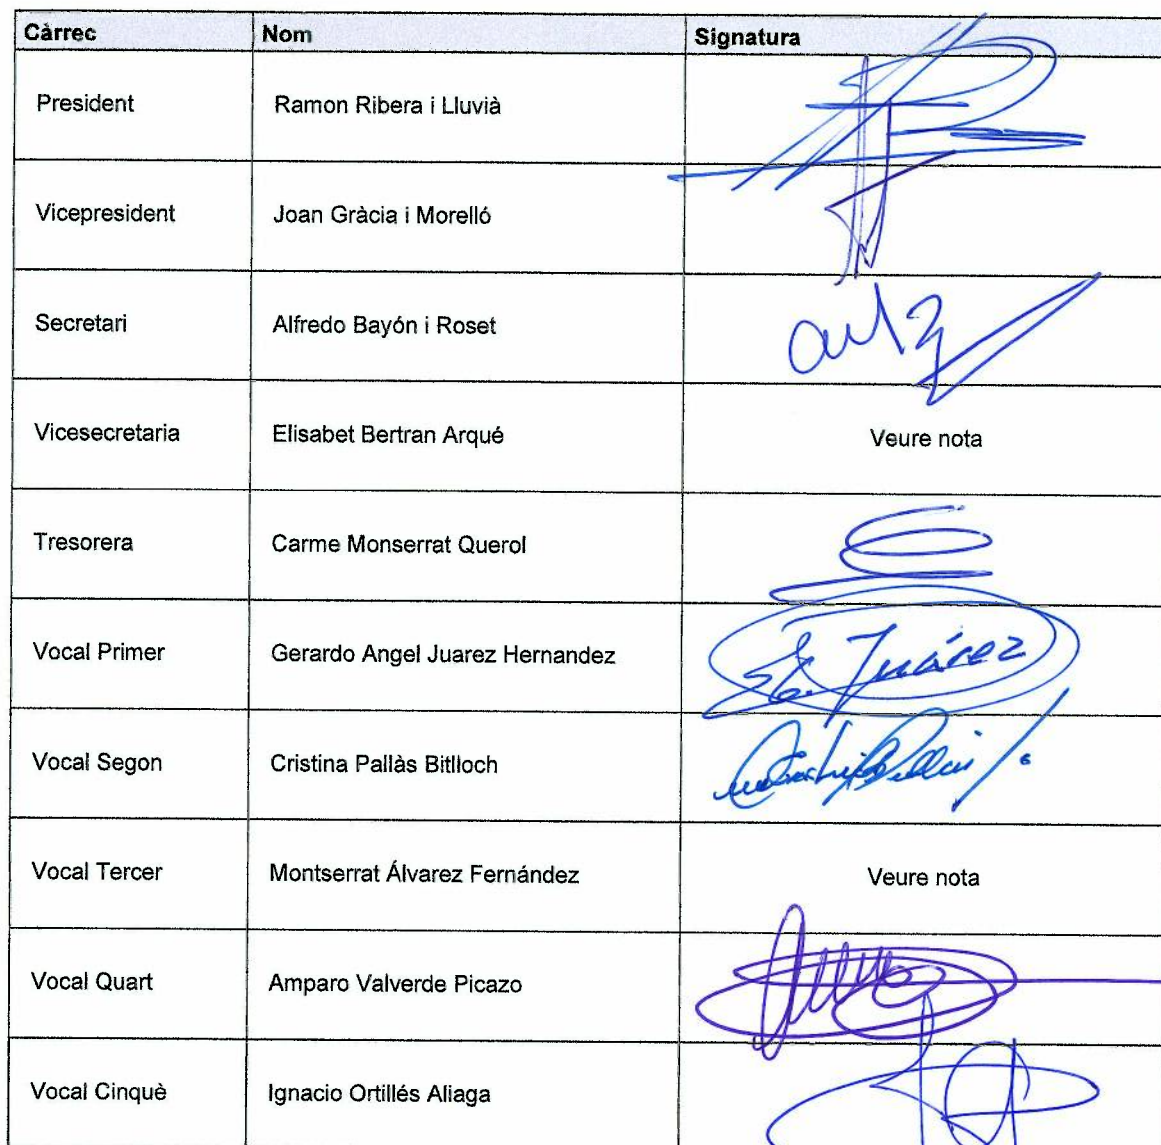 Càrrec Nom Signatura
President Ramon Ribera i Lluvià
Vicepresident Joan Gràcia i Morelló
Secretari Alfredo Bayón i Roset
Vicesecretaria Elisabet Bertran Arqué Veure nota
Tresorera Carme Monserrat Querol
Vocal Primer Gerardo Angel Juarez Hernandez Juárez
Vocal Segon Cristina Pallàs Bitlloch
Vocal Tercer Montserrat Álvarez Fernández Veure nota
Vocal Quart Amparo Valverde Picazo
Vocal Cinquè Ignacio Ortillés Aliaga